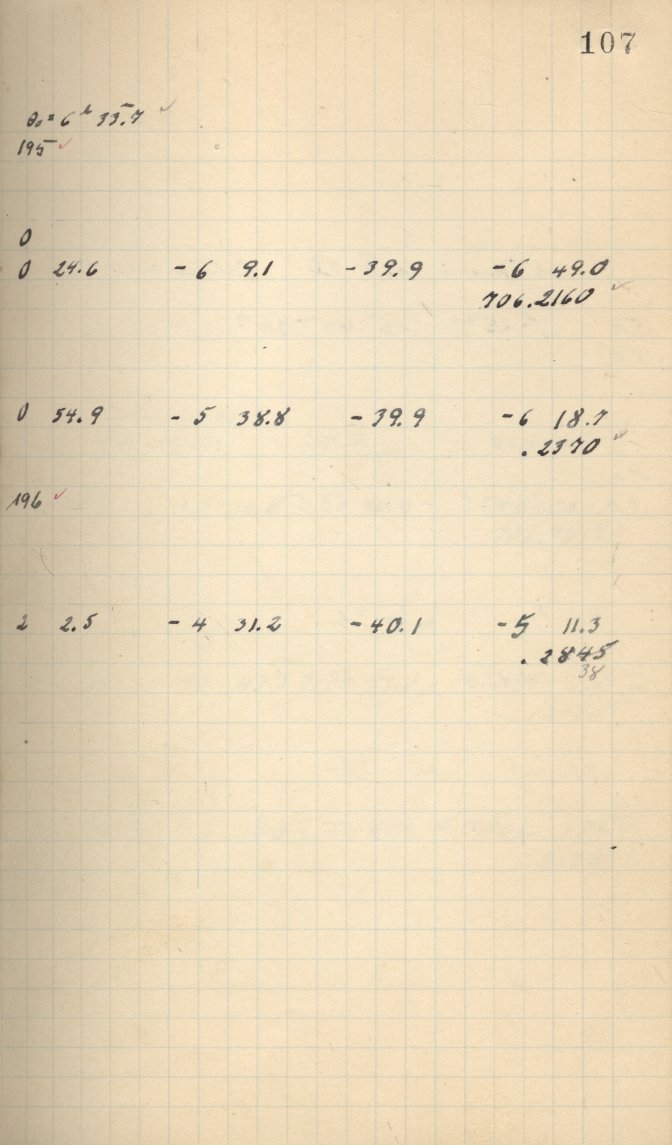 107
θ₀ = 6ʰ 33.7 ✓
195 ✓
0
0 24.6 - 6 9.1 - 39.9 - 6 49.0
706.2160 ✓
0 54.9 - 5 38.8 - 39.9 - 6 18.7
.2370 ✓
196 ✓
2 2.5 - 4 31.2 - 40.1 - 5 11.3
.2845
38